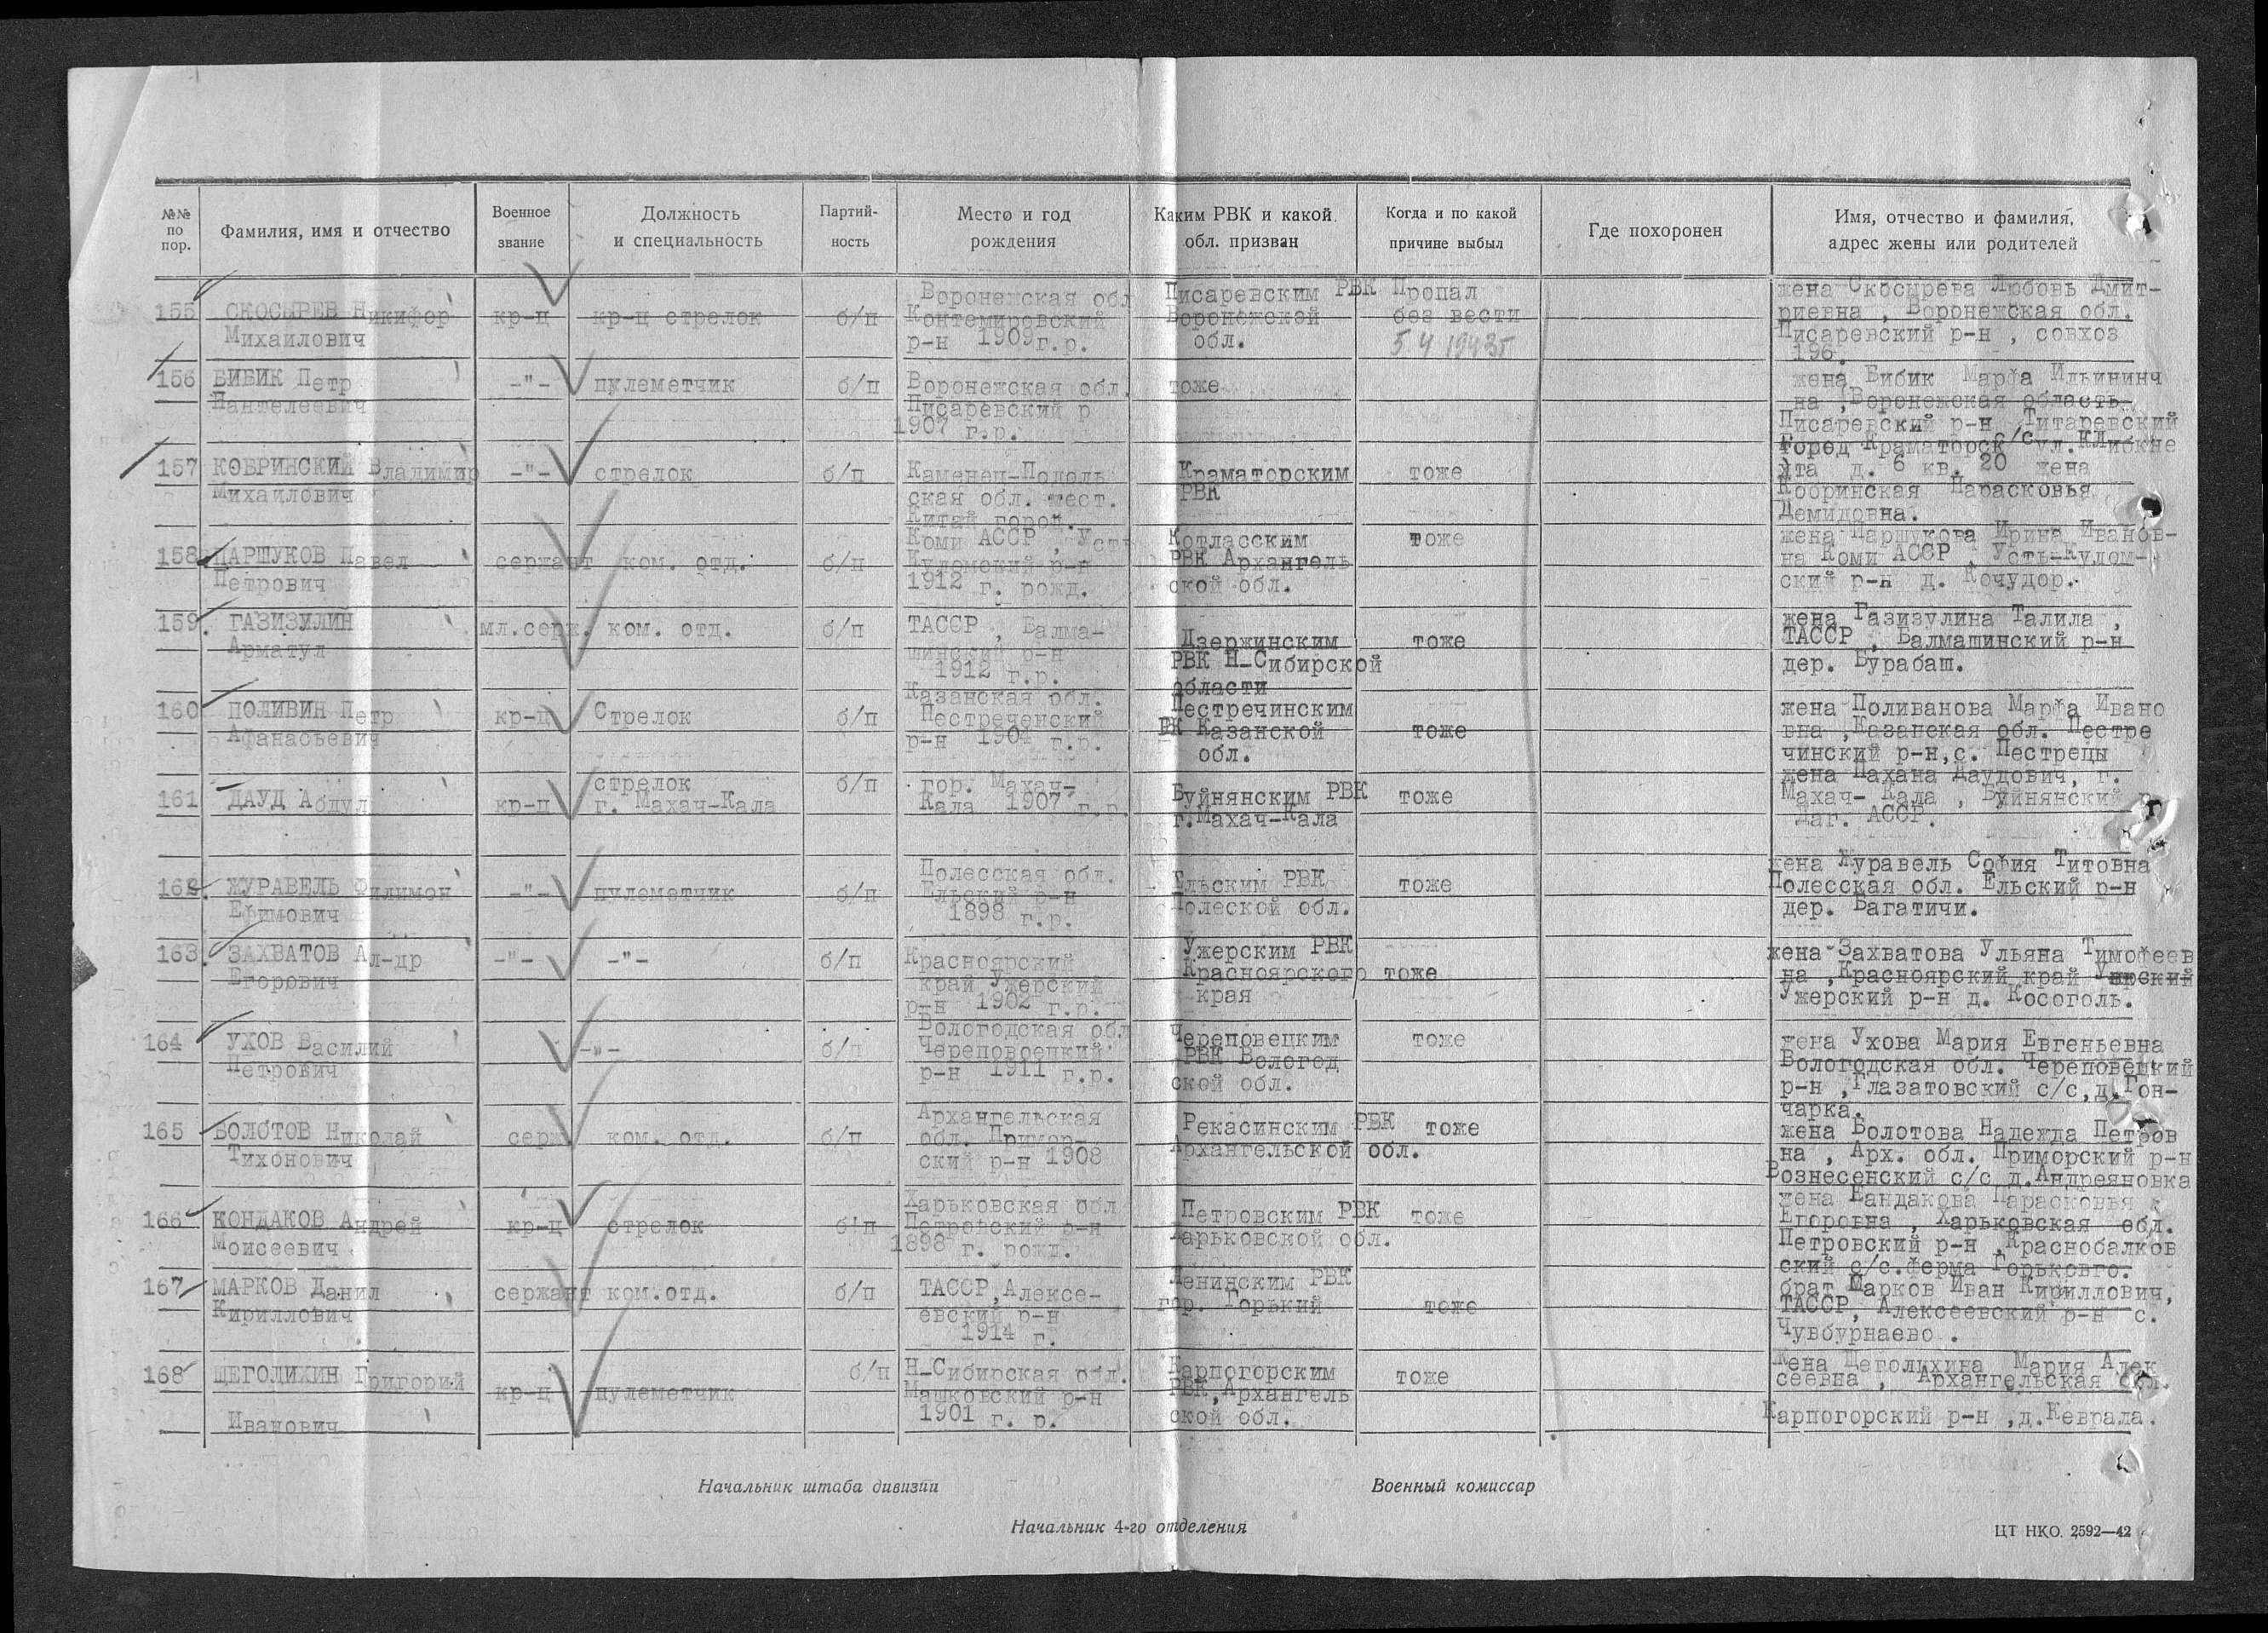 №№ по пор.
Фамилия, имя и отчество
Военное звание
Должность и специальность
Партий-ность
Место и год рождения
Каким РВК и какой обл. призван
Когда и по какой причине выбыл
Где похоронен
Имя, отчество и фамилия, адрес жены или родителей
155
СКОСЫРЕВ Никифор
Михаилович
кр-ц
кр-ц стрелок
б/п
Воронежская обл
Контемировский
р-н 1909г.р.
Писаревским РВК
Воронежской
обл.
Пропал
без вести
5 4 1943г
жена Скосырева Любовь Дмит-
риевна , Воронежская обл.
Писаревский р-н , совхоз
196.
156
БИБИК Петр
Пантелеевич
-"-
пулеметчик
б/п
Воронежская обл.
Писаревский р
1907 г.р.
тоже
жена Бибик Марфа Ильининч
на ,Воронежская область
Писаревский р-н Титаревский
с/с
157
КОБРИНСКИЙ Владимир
Михаилович
-"-
стрелок
б/п
Каменец-Подоль
ская обл. мест.
Китай город.
Краматорским
РВК
тоже
город Краматорск ул. КЛибкне
хта д. 6 кв. 20 жена
Кобринская Парасковья
Демидовна.
158
ПАРШУКОВ Павел
Петрович
сержант
ком. отд.
б/п
Коми АССР , Усть
Куломский р-н
1912 г. рожд.
Котласским
РВК Архангель
ской обл.
тоже
жена Паршукова Ирина Иванов-
на Коми АССР , Усть-Кулом-
ский р-н д. Кочудор.
159.
ГАЗИЗУЛИН
Арматул
мл.серж.
ком. отд.
б/п
ТАССР , Балма-
шинский р-н
1912 г.р.
Дзержинским
РВК Н-Сибирской
области
тоже
жена Газизулина Талила ,
ТАССР , Балмашинский р-н
дер. Бурабаш.
160
ПОЛИВИН Петр
Афанасьевич
кр-ц
Стрелок
б/п
Казанская обл.
Пестреченский
р-н 1901 г.р.
Пестречинским
ВК Казанской
обл.
тоже
жена Поливанова Марфа Ивано
вна ,Казанская обл. Пестре
чинский р-н,с. Пестрецы
161
ДАУД Абдул
кр-ц
стрелок
г. Махач-Кала
б/п
гор. Махач-
Кала 1907 г.р.
Буйнянским РВК
г.Махач-Кала
тоже
жена Пахана Даудович, г.
Махач- Кала , Буйнянский р
Даг. АССР.
162.
ЖУРАВЕЛЬ Филимон
Ефимович
-"-
пулеметчик
б/п
Полесская обл.
Ельский р-н
1898 г.р.
Ельским РВК
Полеской обл.
тоже
жена Журавель София Титовна
Полесская обл. Ельский р-н
дер. Багатичи.
163.
ЗАХВАТОВ Ал-др
Егорович
-"-
-"-
б/п
Красноярский
край Ужерский
р-н 1902 г.р.
Ужерским РВК
Красноярского
края
тоже
жена Захватова Ульяна Тимофеев
на , Красноярский край
Ужерский р-н д. Косоголь.
164
УХОВ Василий
Петрович
-"-
б/п
Вологодская обл
Череповоецкий
р-н 1911 г.р.
Череповецким
РВК Вологод
ской обл.
тоже
жена Ухова Мария Евгеньевна
Вологодская обл. Череповецкий
р-н ,Глазатовский с/с,д.Гон-
чарка.
165
БОЛОТОВ Николай
Тихонович
серж
ком. отд.
б/п
Архангельская
обл. Примор-
ский р-н 1908
Рекасинским РВК
Архангельской обл.
тоже
жена Болотова Надежда Петров
на , Арх. обл. Приморский р-н
Вознесенский с/с д.Андреяновка
166
КОНДАКОВ Андрей
Моисеевич
кр-ц
стрелок
б!п
Харьковская обл
Петровский р-н
1898 г. рожд.
Петровским РВК
Харьковской обл.
тоже
жена Кандакова Парасковья
Егоровна , Харьковская обл.
Петровский р-н ,Краснобалков
ский с/с.ферма Горького.
167
МАРКОВ Данил
Кириллович
сержант
ком.отд.
б/п
ТАССР,Алексе-
евский р-н
1914 г.
Ленинским РВК
гор. Горький
тоже
брат Марков Иван Кириллович,
ТАССР, Алексеевский р-н с.
Чувбурнаево .
168
ЩЕГОЛИХИН Григорий
Иванович
кр-ц
пулеметчик
б/п
Н-Сибирская обл.
Машковский р-н
1901 г. р.
Карпогорским
РВК,Архангель
ской обл.
тоже
Жена Щеголихина Мария Алек
сеевна , Архангельская обл.
Карпогорский р-н ,д.Кеврала.
Начальник штаба дивизии
Военный комиссар
Начальник 4-го отделения
ЦТ НКО. 2592—42